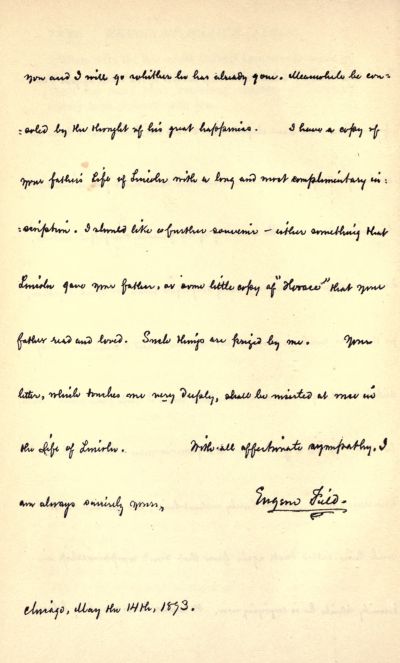 you and I will go whither he has already gone. Meanwhile be con=
=soled by the thought of his great happiness. I have a copy of
your father's Life of Lincoln with a long and most complimentary in=
=scription. I should like a further souvenir – either something that
Lincoln gave your father, or some little copy of "Horace" that your
father read and loved. Such things are prized by me. Your
letter, which touches me very deeply, shall be inserted at once in
the Life of Lincoln. With all affectionate sympathy, I
am always sincerely yours,
Eugene Field.
Chicago, May the 14th, 1893.